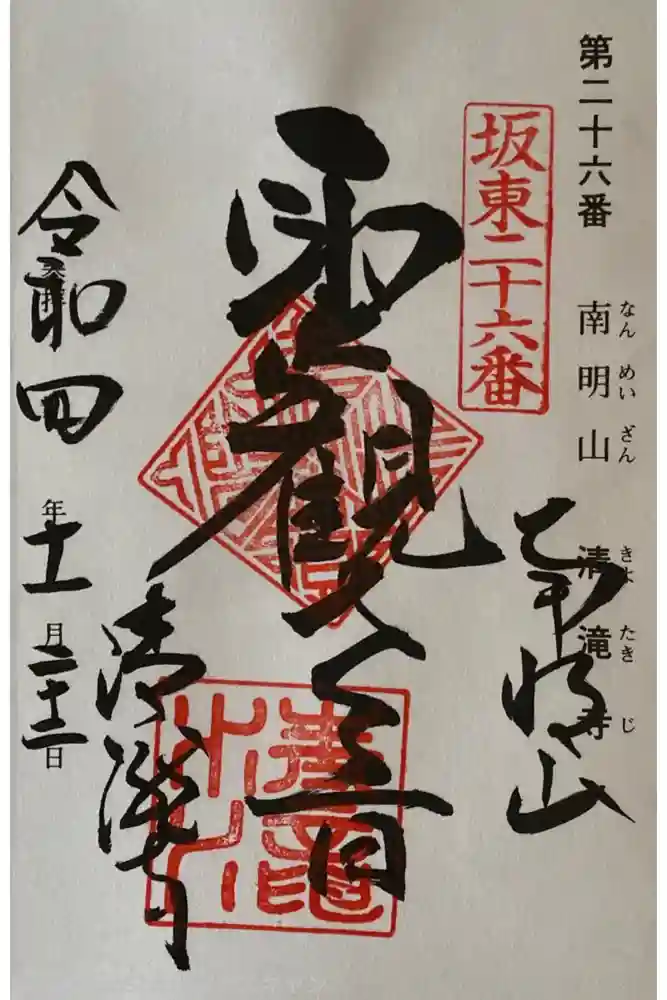 第二十六番 南明山 清滝寺
なんめいざん きよたきじ
坂東二十六番
南明山
聖観世音
清瀧寺
奉拝
令和四年十一月二十二日